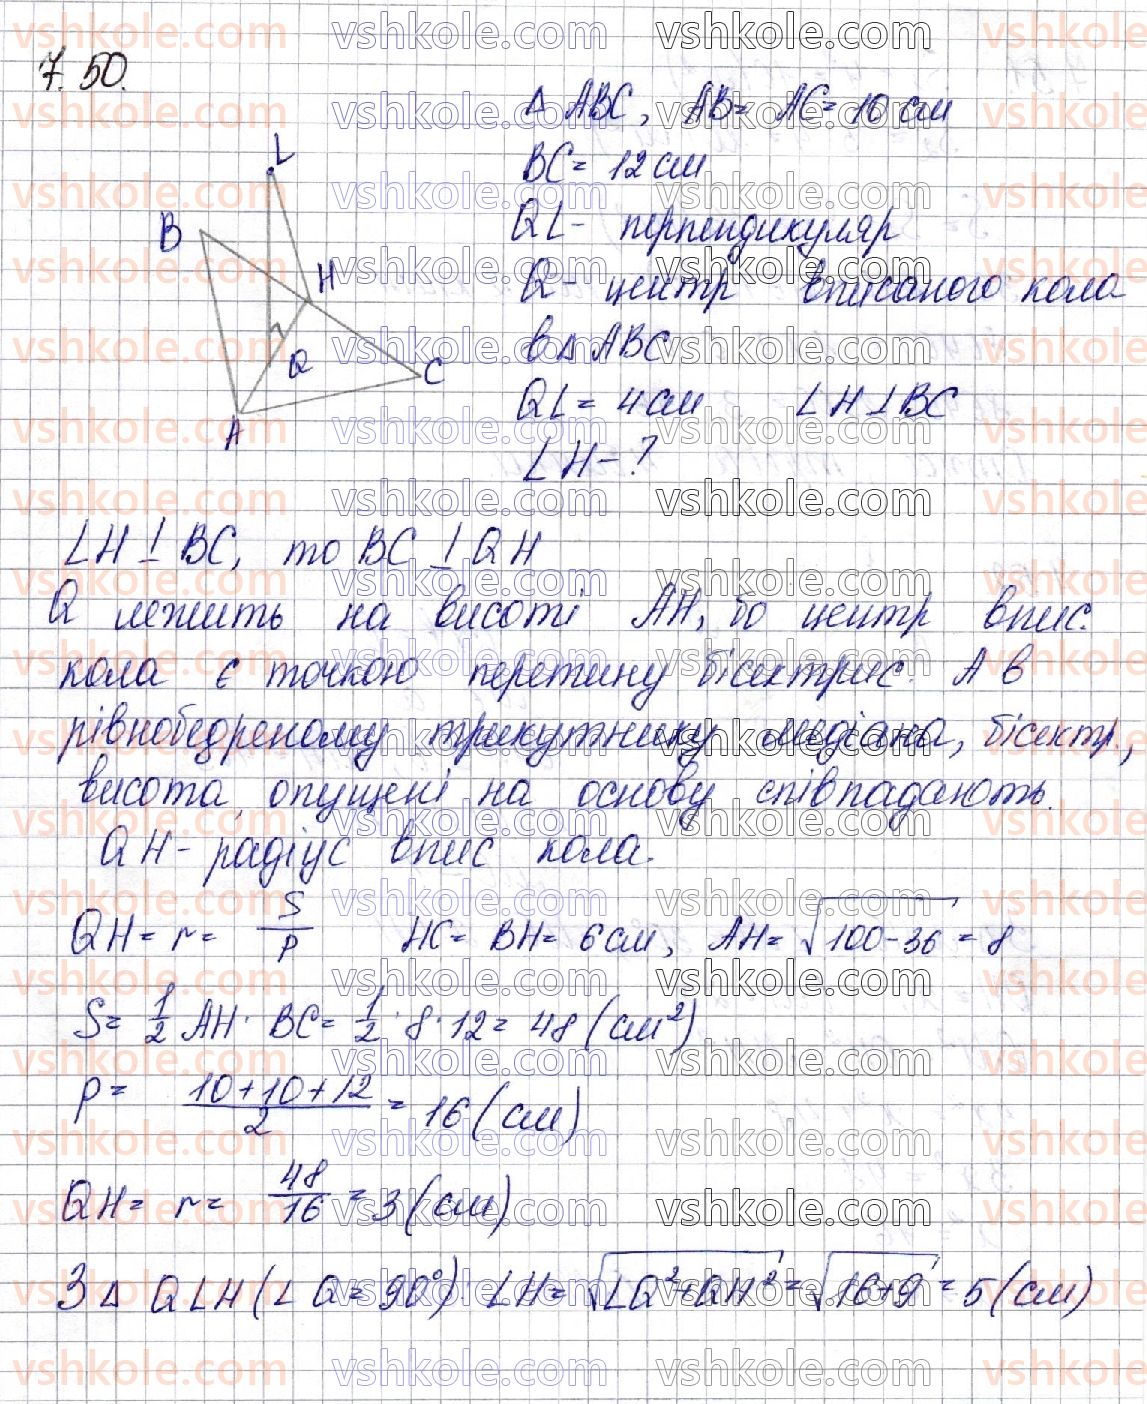 7.50.
△ ABC, AB = AC = 10 см
BC = 12 см
QL - перпендикуляр
Q - центр вписаного кола
в △ ABC
QL = 4 см LH ⊥ BC
LH - ?
L
B
H
Q
C
A
LH ⊥ BC, то BC ⊥ QH
Q лежить на висоті AH, бо центр впис.
кола є точкою перетину бісектрис. А в
рівнобедреному трикутнику медіана, бісектр.,
висота, опущені на основу співпадають.
QH - радіус впис кола.
QH = r = S/p HC = BH = 6 см, AH = √(100-36) = 8
S = 1/2 AH · BC = 1/2 · 8 · 12 = 48 (см²)
p = (10+10+12)/2 = 16 (см)
QH = r = 48/16 = 3 (см)
З △ QLH (∠Q = 90°) LH = √(LQ²+QH²) = √(16+9) = 5 (см)
vshkole.com